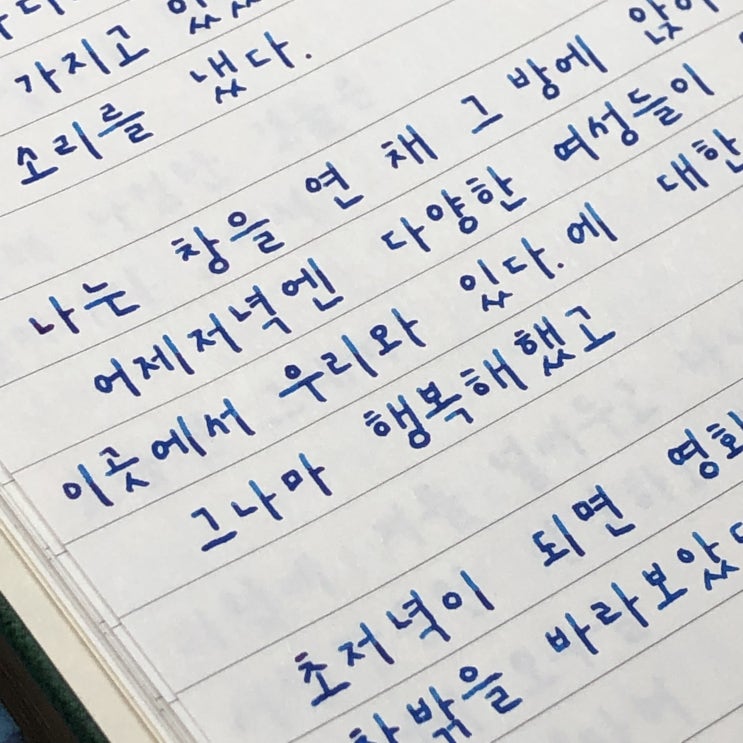 가지고 있었
소리를 냈다.
나는 창을 연 채 그 방에 앉아
어제저녁엔 다양한 여성들이
이곳에서 우리와 있다.에 대한
그나마 행복해했고
초저녁이 되면 영화
창밖을 바라보았다